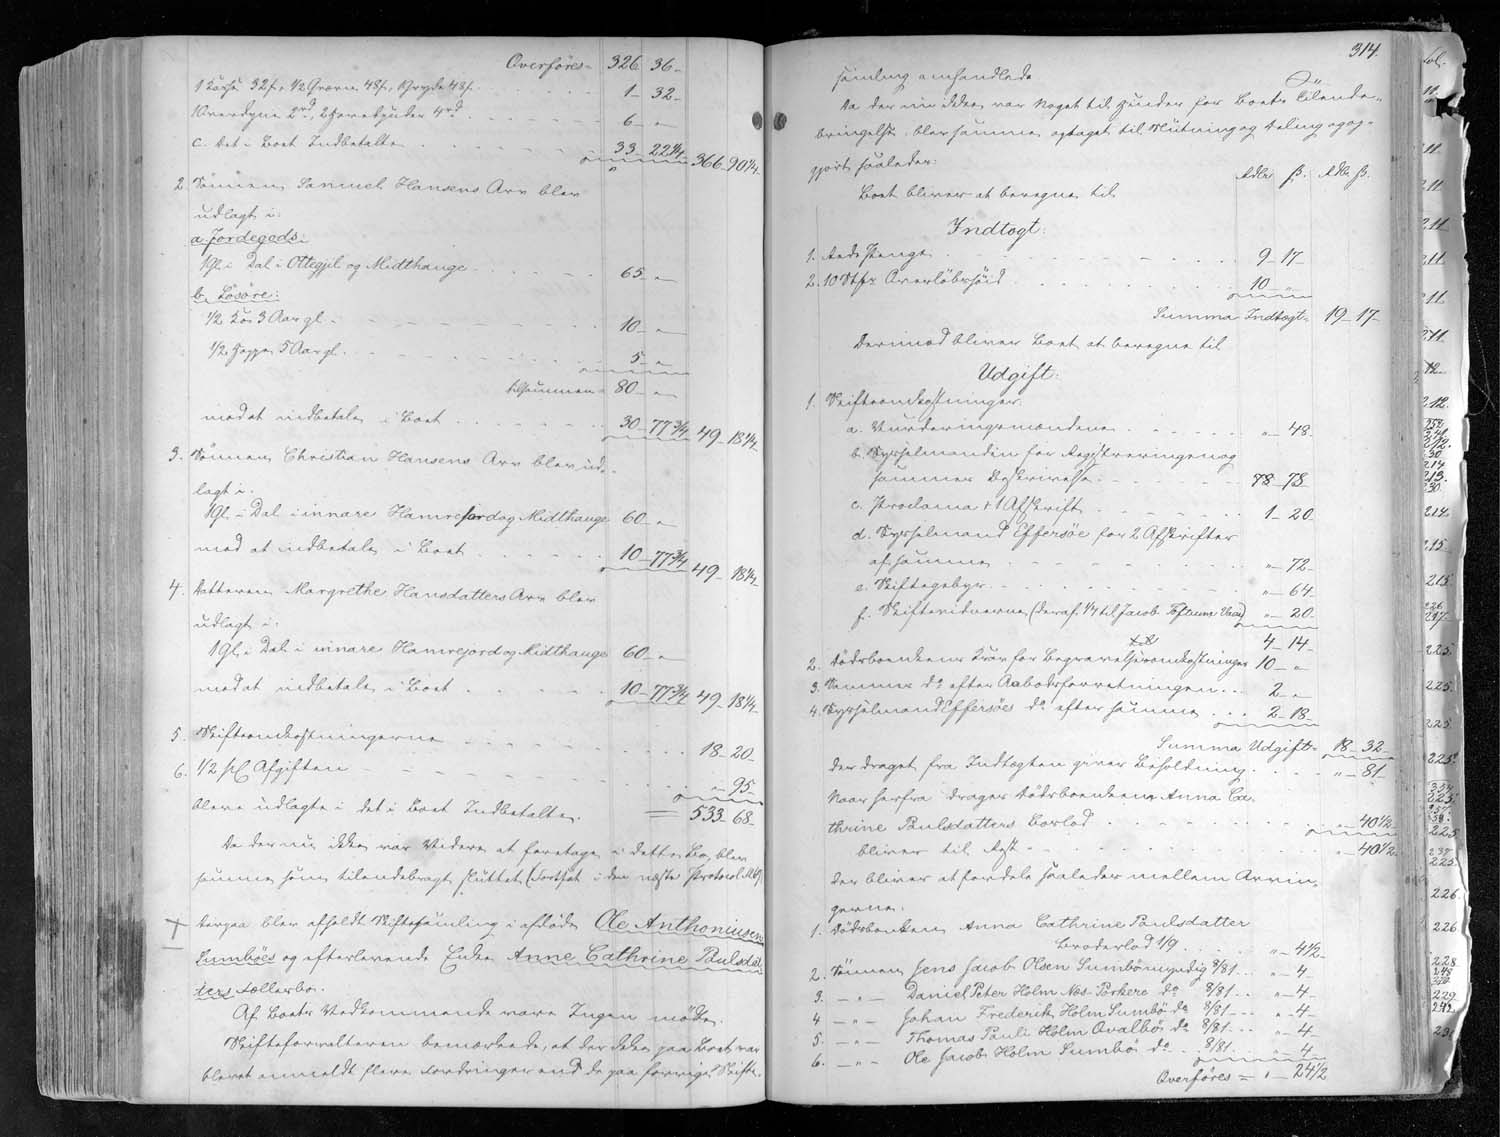 Overføres 326 36
1 Kaabe 32f, 1/2 48f, Gryde 48f 1 32
1 Overdyne 2rd, 2 Hovedpuder 4rd 6 "
c. Det i Boet Indbetalte 33 22 1/4 366 90 1/4
2 Sønnen Samuel Hansens Arv blev
udlagt i:
a. Jordegods:
1 Gl. i Dal i Ottegjil og Midthauge 65 "
b. Løsøre:
1/2 Ko 3 Aar gl. 10 "
1/2 Hoppe 5 Aar gl. 5 "
tilsammen 80 "
mod at indbetale i Boet 30 77 3/4 49 18 1/4
3. Sønnen Christian Hansens Arv blev ud-
lagt i:
1 Gl. i Dal i innare Hamrejord og Midthauge 60 "
mod at indbetale i Boet 10 77 3/4 49 18 1/4
4. Datteren Margrethe Hansdatters Arv blev
udlagt i:
1 Gl. i Dal i innare Hamrejord og Midthauge 60 "
mod at indbetale i Boet 10 77 3/4 49 18 1/4
5. Skifteomkostningerne 18 20
6. 1/2 pC Afgiften " 95
bleve udlagte i det i Boet Indbetalte. = 533 68
Da der nu ikke var Videre at foretage i dette Bo, blev
samme som tilendebragt sluttet (Fortsat i den næste Protocol
Derpaa blev afholdt Skiftesamling i afdøde Ole Anthoniusen
Sumbøes og efterlevende Enke Anne Cathrine Poulsdat-
ters Fællesbo.
Af Boets Vedkommende vare Ingen mødte.
Skifteforvalteren bemærkede, at der ikke paa Boet var
blevet anmeldt flere Fordringer end de paa forrige Skifte-
314
samling omhandlede
Da der nu ikke var Noget til Hinder for Boets Tilende-
bringelse, blev samme optaget til Slutning og Deling og op-
gjort saaledes:
Rdlr ß. Rdlr ß.
Boet bliver at beregne til
Indtægt:
1. Rede Penge 9 17
2. 10 Overløbsføid 10 "
Summa Indtægt 19 17
Derimod bliver Boet at beregne til
Udgift:
1. Skifteomkostninger:
a. Vurderingsmændene " 48
b. Sysselmanden for Registreringen og
sammes Beskrivelse 78 78
c. Proclama + 1 Afskrift 1 20
d. Sysselmand Effersøe for 2 Afskrifter
af samme " 72
e. Skiftegebyr " 64
f. Skiftevidnerne (deraf 1/4 til Jacob Toftum Vaag) " 20
4 14
2. Dødsboenkens Krav for Begravelsesomkostninger 10 "
3. Sammes do efter Aabodsforretningen 2 "
4. Sysselmand Effersøes do efter samme 2 18
Summa Udgift 18 32
der draget fra Indtægten giver Beholdning " 81
Naar herfra drages Dødsboenken Anna Ca-
thrine Poulsdatters Boslod " 40 1/2
bliver til Rest " 40 1/2
der bliver at fordele saaledes mellem Arvin-
gerne.
1. Dødsboenken Anna Cathrine Poulsdatter
Broderlod 1/9 " 4 1/2
2. Sønnen Jens Jacob Olsen Sumbø myndig 8/81 " 4
3. " Daniel Peter Holm Nes-Porkere do 8/81 " 4
4 " Johan Frederik Holm Sumbø do 8/81 " 4
5. " Thomas Pauli Holm Qvalbø do 8/81 " 4
6. " Ole Jacob Holm Sumbø do 8/81 " 4
Overføres = " 24 1/2